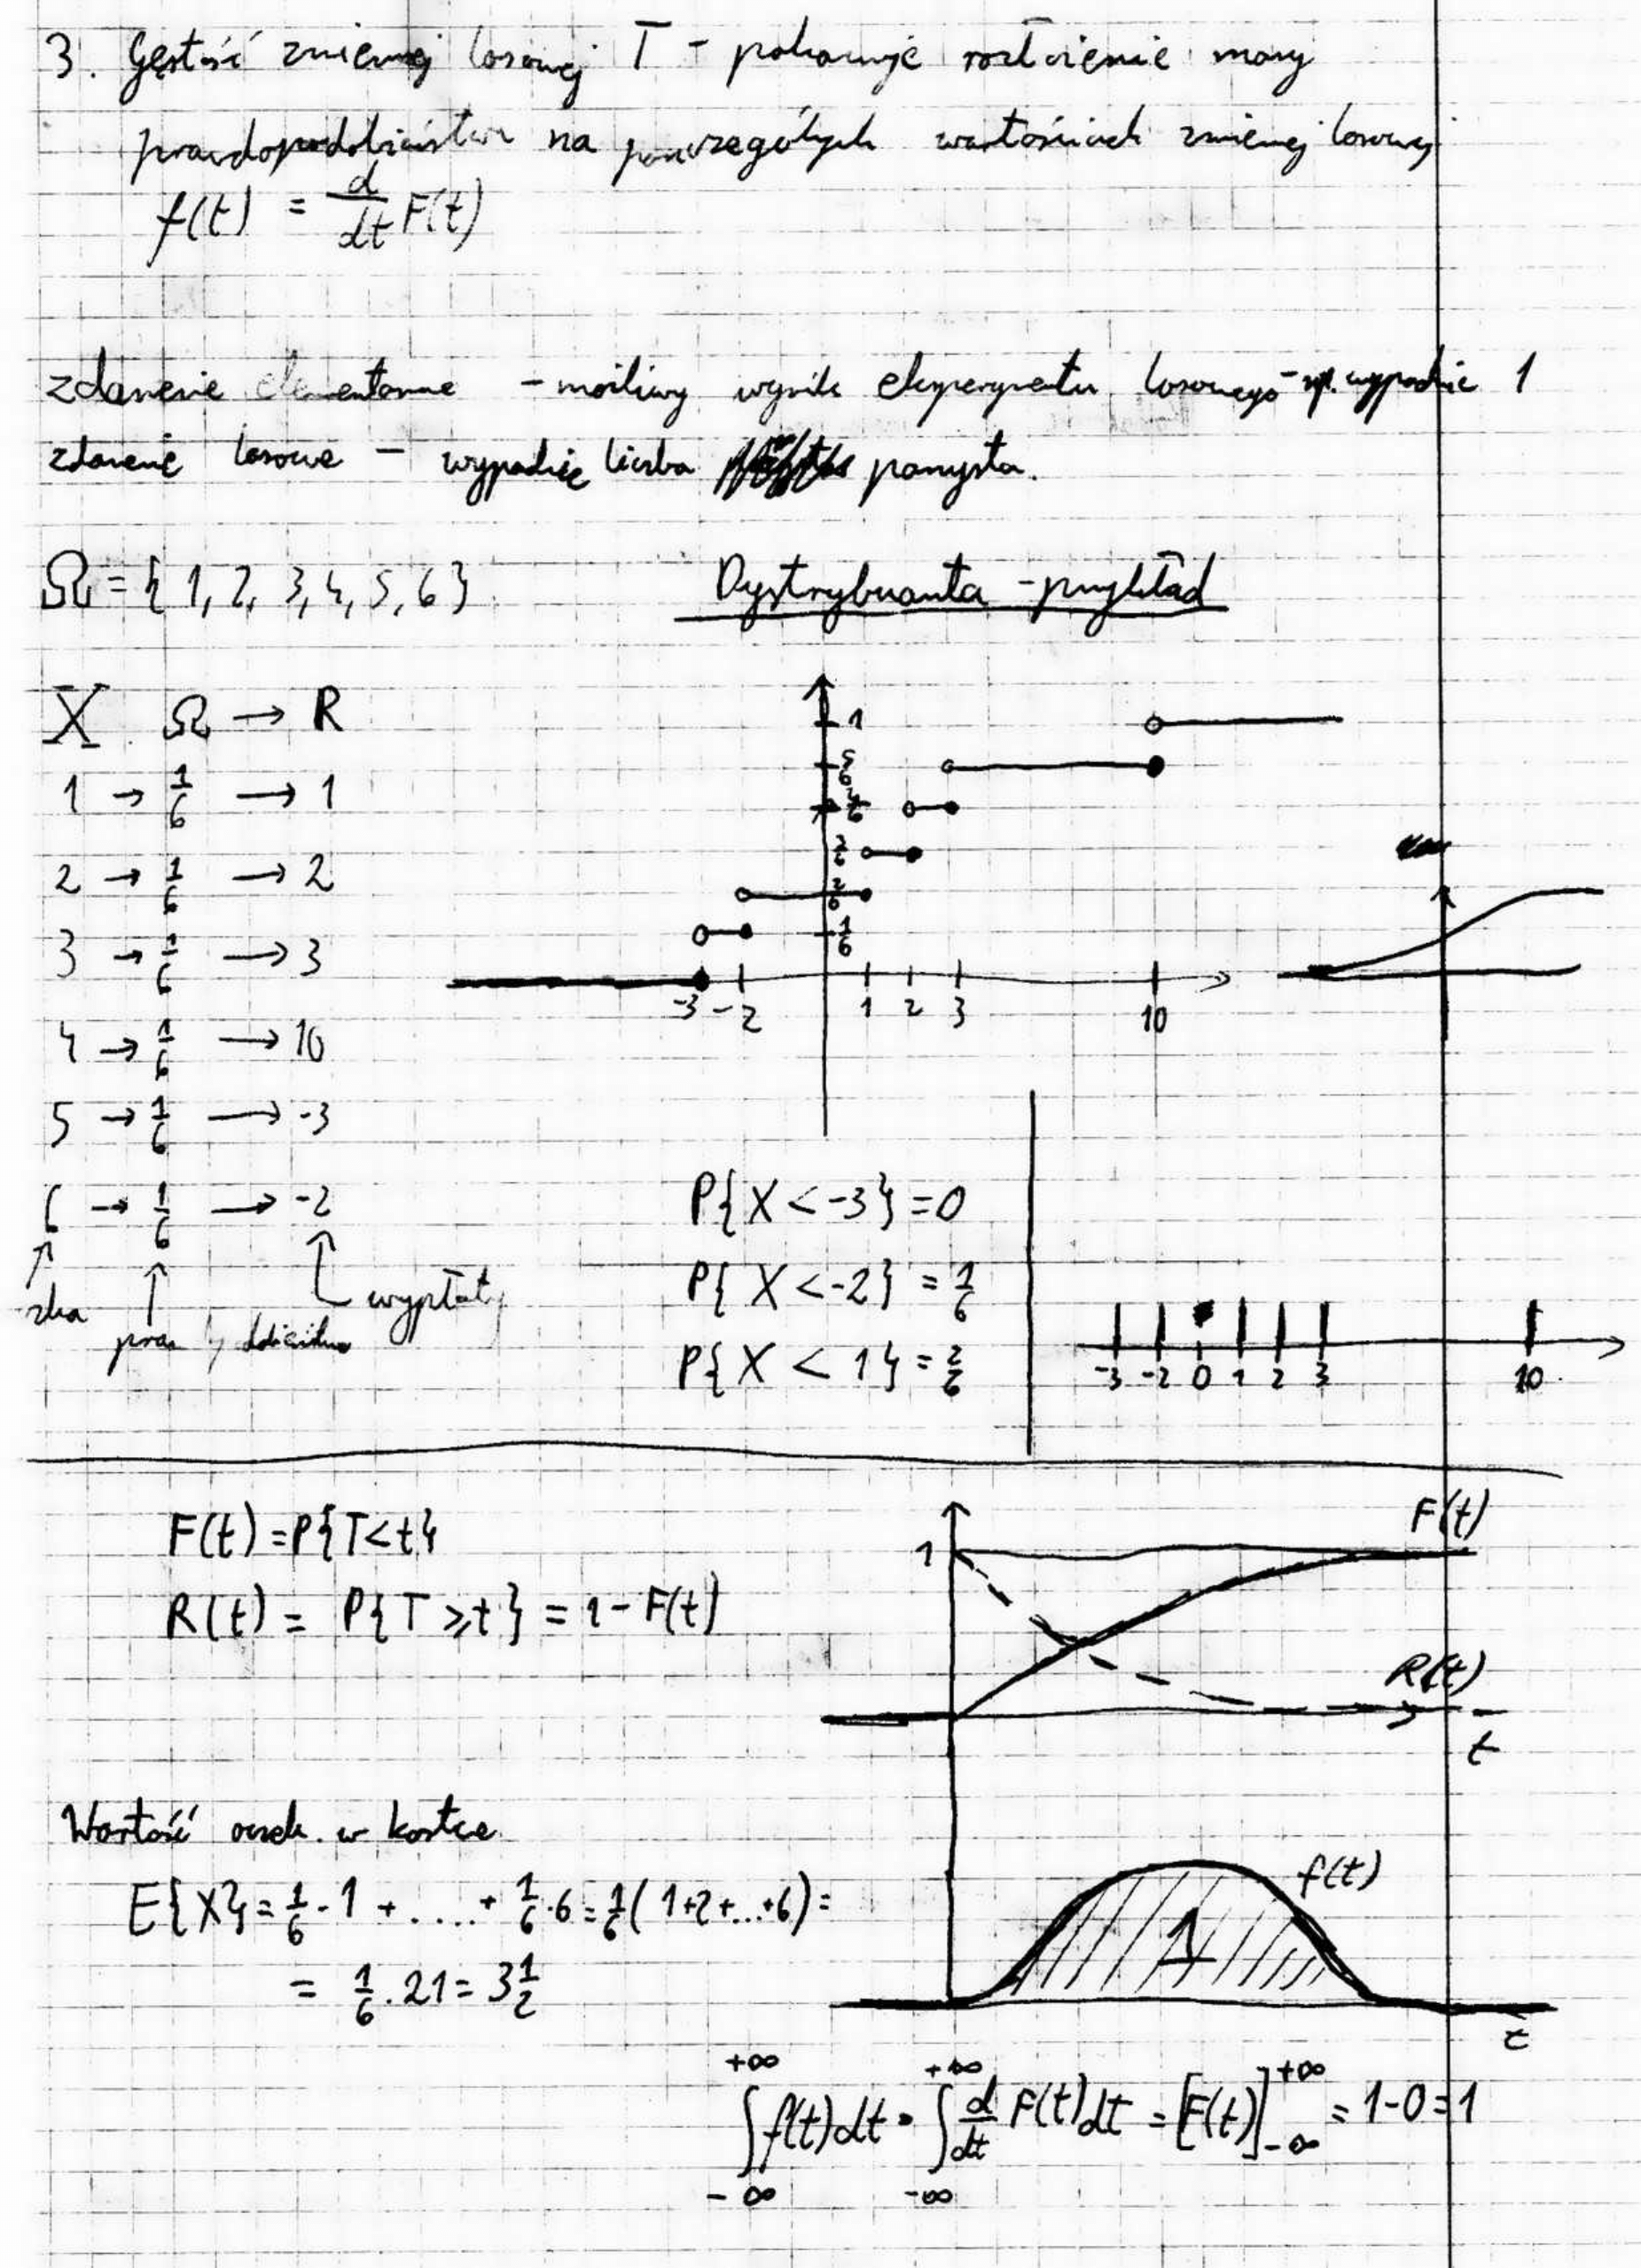 3. Gęstość zmiennej losowej T - pokazuje rozłożenie masy
prawdopodobieństwa na poszczególnych wartościach zmiennej losowej
f(t) = d/dt F(t)
zdarzenie elementarne - możliwy wynik eksperymentu losowego - np. wypadnie 1
zdarzenie losowe - wypadnie liczba parzysta.
Ω = { 1, 2, 3, 4, 5, 6 }
Dystrybuanta - przykład
X Ω → R
1 → 1/6 → 1
2 → 1/6 → 2
3 → 1/6 → 3
4 → 1/6 → 10
5 → 1/6 → -3
6 → 1/6 → -2
wypłaty
1
5/6
4/6
3/6
2/6
1/6
-3 -2 1 2 3 10
P{X < -3} = 0
P{X < -2} = 1/6
P{X < 1} = 2/6
-3 -2 0 1 2 3 10
F(t) = P{T < t}
R(t) = P{T ⩾ t} = 1 - F(t)
F(t)
1
R(t)
t
Wartość oczek. w kostce
E{X} = 1/6 · 1 + .... + 1/6 · 6 = 1/6 ( 1+2+...+6) =
= 1/6 . 21 = 3 1/2
f(t)
1
t
+∞ ∫ -∞ f(t) dt = +∞ ∫ -∞ d/dt F(t) dt = [F(t)] +∞ -∞ = 1-0=1